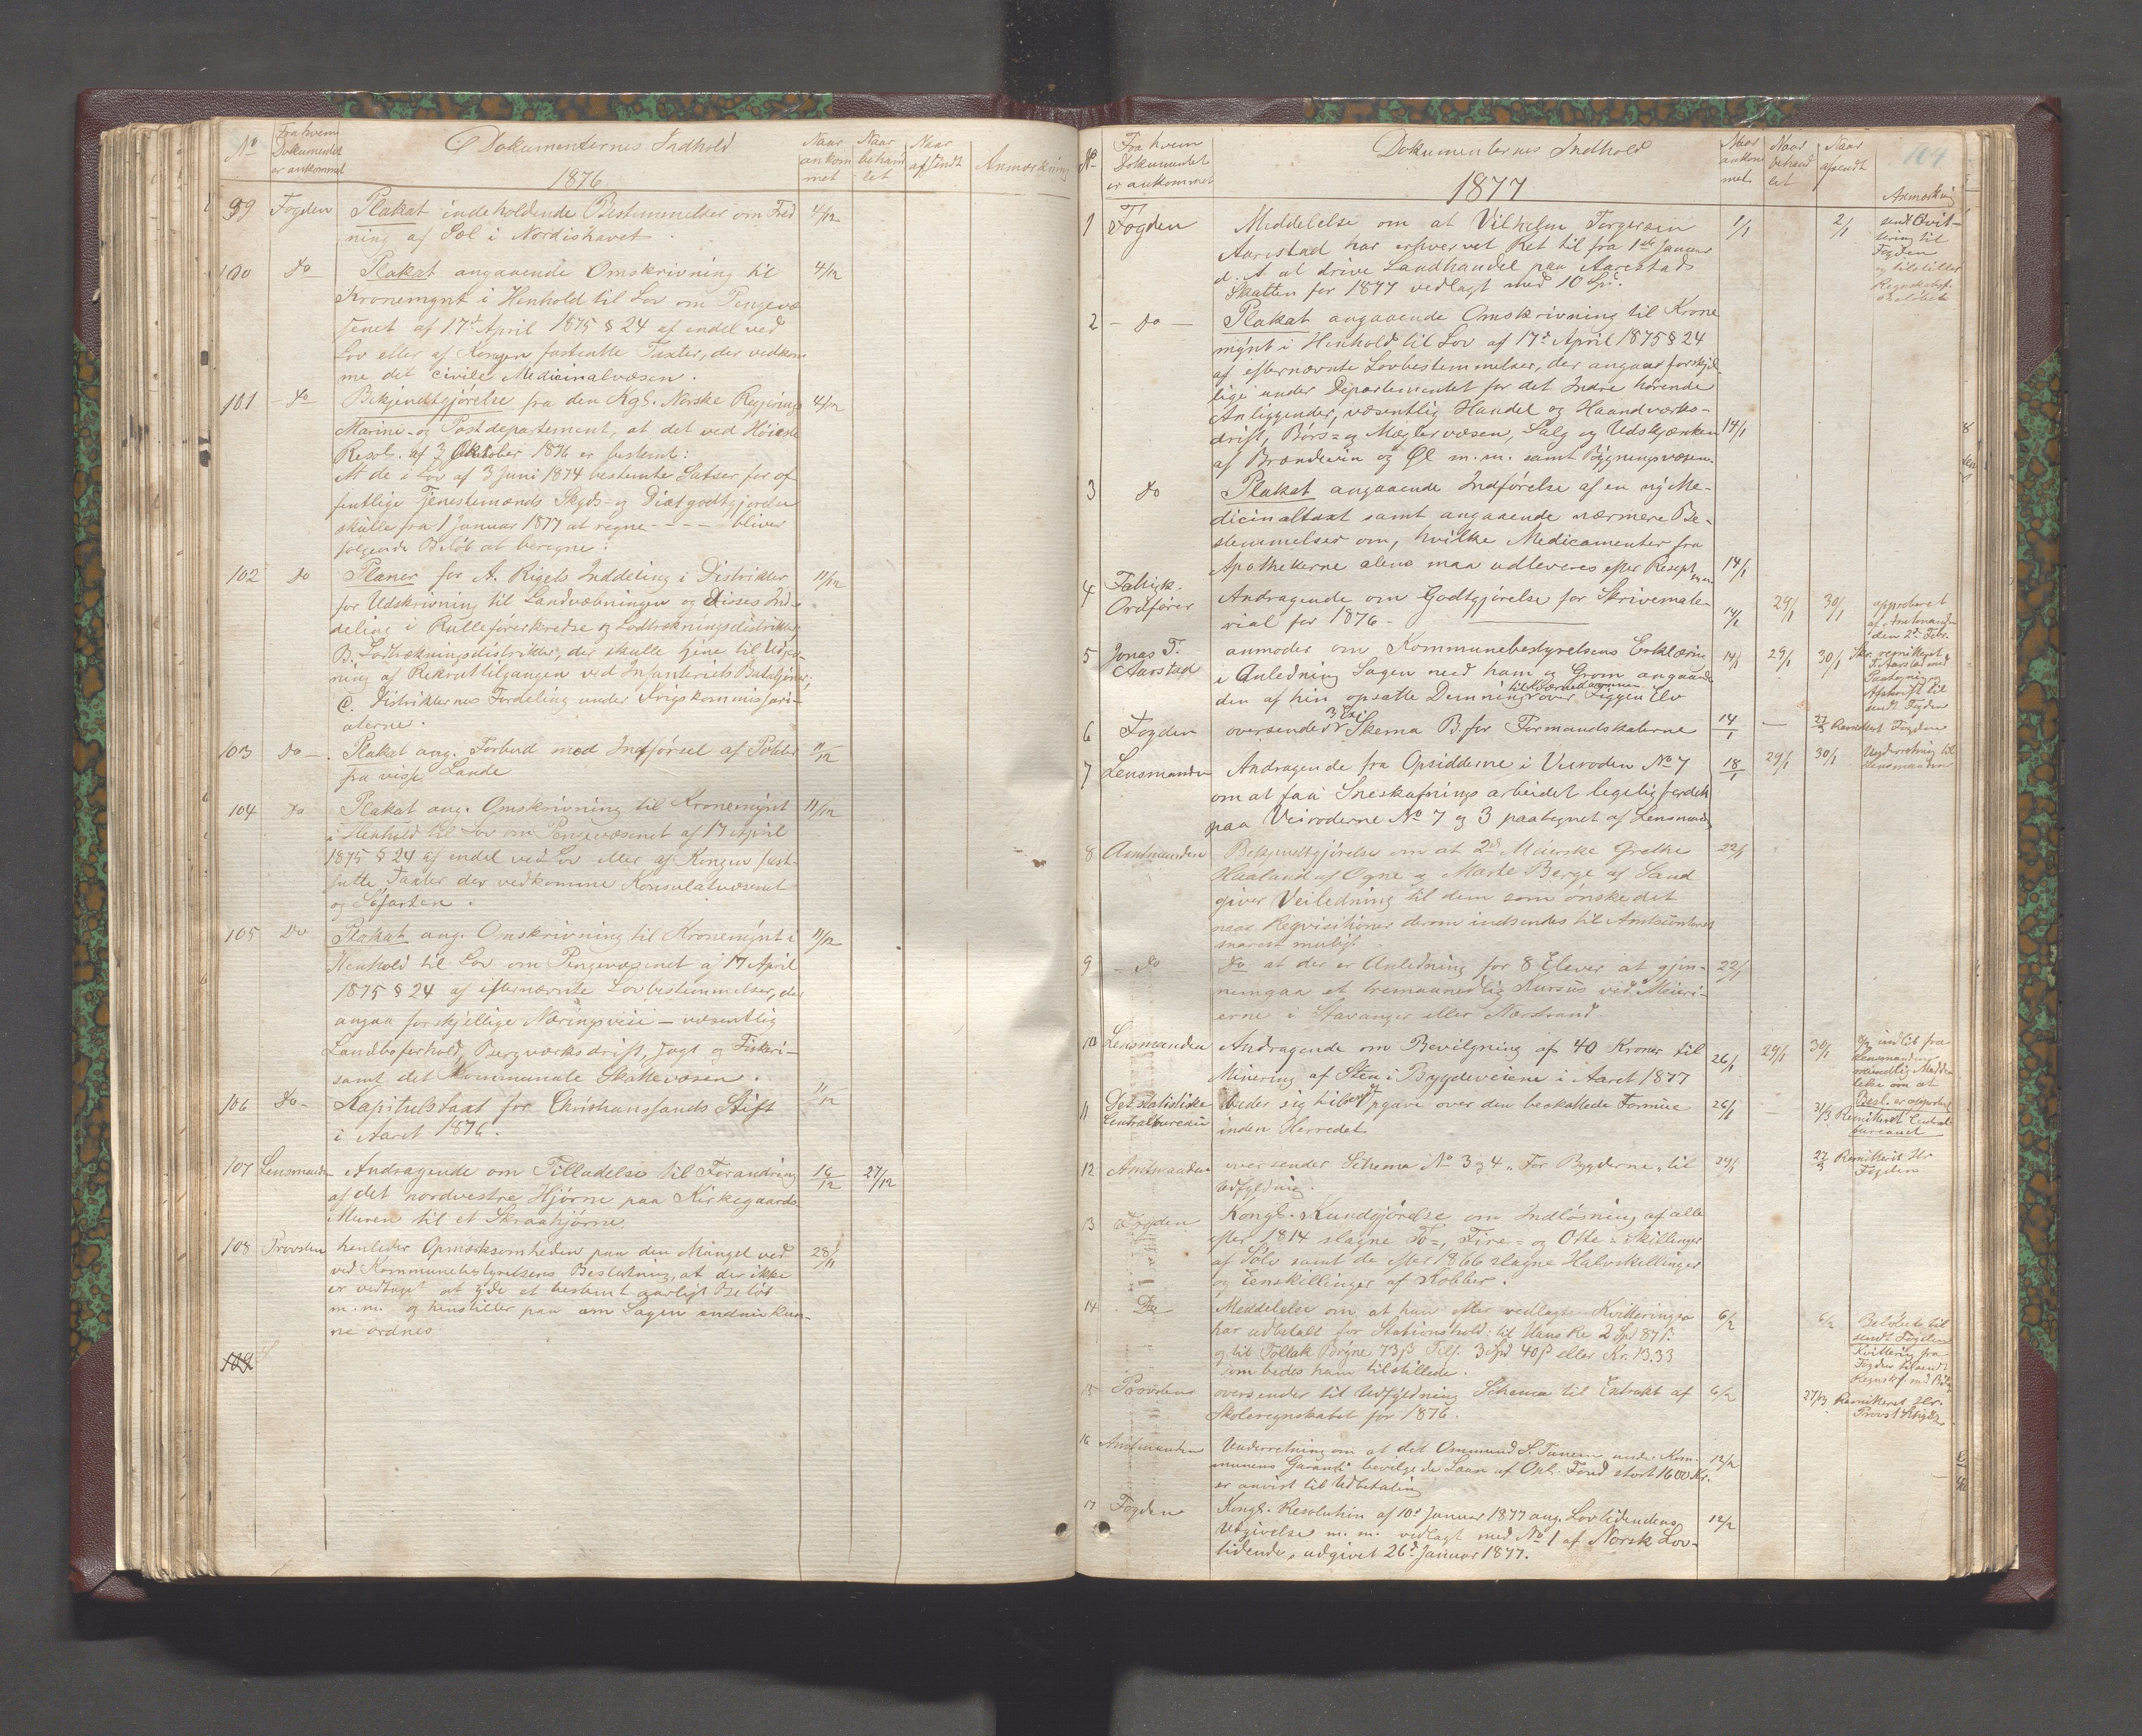 No Fra hvem Dokumentet er ankommet Dokumenternes Indhold Naar ankommet Naar behandlet Naar afsendt Anmærkning
1876
99 Fogden Plakat indeholdende Bestemmelser om Fred 4/12
ning af Sæl i Nordishavet.
100 Do Plakat angaaende Omskrivning til 4/12
Kronemynt i Henhold til Lov om Pengevæ
senet af 17d April 1875 § 24 af endel ved
Lov eller af Kongen fastsatte Taxter, der vedkom
me det civile Medicinalvæsen.
101 Do Bekjendtgjørelse fra den Kgl. Norske Regjerings 4/12
Marine- og Postdepartement, at det ved Høieste
Resol. af 3 Oktober 1876 er bestemt:
At de i Lov af 3 Juni 1874 bestemte Satser for of
fentlige Tjenestemænds Skyds- og Diætgodtgjørelse
skulle fra 1 Januar 1877 at regne - - - - bliver
følgende Beløb at beregne:
102 Do Planer for A. Rigets Inddeling i Distrikter 11/12
for Udskrivning til Landværbningen og disses Ind-
deling i Rulleførerkredse og Lodtrækningsdistrikter
B. Lodtrækningsdistrikter, der skulle tjene til Udjæv-
ning af Rekruttilgangen ved Infanteriets Bataljoner;
C. Distrikternes Fordeling under Krigskommissari-
aterne.
103 Do Plakat ang. Forbud mod Indførsel af Poteter 11/12
fra visse Lande
104 Do Plakat ang. Omskrivning til Kronemynt 11/12
i Henhold til Lov om Pengevæsenet af 17 April
1875 § 24 af endel ved Lov eller af Kongen fast-
satte Taxter der vedkomme Konsulatvæsenet
og Søfarten.
105 Do Plakat ang. Omskrivning til Kronemynt i 11/12
Henhold til Lov om Pengevæsenet af 17 April
1875 § 24 af efternævnte Lovbestemmelser, der
angaa forskjellige Næringsveie - væsentlig
Landboforhold, Bergværksdrift, Jagt og Fiskeri-
samt det Kommunale Skattevæsen.
106 Do Kapitelstaxt for Christianssands Stift 11/12
i Aaret 1876.
107 Lensmanden Andragende om Tilladelse til Forandring 16/12 27/12
af det nordvestre Hjørne paa Kirkegaards
Muren til et Skraahjørne
108 Provsten henleder Opmærksomheden paa den Mangel ved 28/11
ved Kommunebestyrelsens Beslutning, at der ikke
er vedtaget at yde et bestemt aarligt Beløb
m.m. og henstiller paa om Sagen endnu kun-
ne ordnes
109
No Fra hvem Dokumentet er ankommet Dokumenternes Indhold Naar ankommet Naar behandlet Naar afsendt Anmærkning 104
1877
1 Fogden Meddelelse om at Vilhelm Torgersen 1/1 2/1 sendt Qvit-
Aarestad har erhvervet Ret til fra 1ste Januar tering til
d. A at drive Landhandel paa Aarestad Fogden
Skatten for 1877 vedlagt med 10 Spd. og tilstiller
Beløbet
2 Do Plakat angaaende Omskrivning til Krone
mynt i Henhold til Lov af 17d April 1875 § 24
af efternævnte Lovbestemmelser, der angaar forskjel-
lige under Departementet for det Indre hørende
Anliggender, væsentlig Handel og Haandværks-
drift, Børs- og Mæglervæsen, Salg og Udskjænken 14/1
af Brændeviin og Øl m.m. samt Bygningsvæsen.
3 Do Plakat angaaende Indførelse af en ny Me-
dicinaltaxt samt angaaende nærmere Be-
stemmelser om, hvilke Medicamenter fra
Apothekerne alene maa udleveres efter Resept 14/1
4 Fattigk. Ordfører Andragende om Godtgjørelse for Skrivemate- 14/1 29/1 30/1 approberet
rial for 1876 - af Amtmanden
den 2d Febr.
5 Jonas T. Aarstad anmoder om Kommunebestyrelsens Erklæring 14/1 29/1 30/1
i Anledning Sagen med ham og Grom angaaende
den af hin opsatte Demning til Kværnedammen over Figgen Elv Paategning og
Afskrift til
sendt Fogden
6 Fogden oversender 3 Ex Skema B. for Formandskaberne 14/1 - 27/3 Remitteret Fogden
7 Lensmanden Andragende fra Opsidderne i Veiroden No 7 18/1 29/1 30/1 Underretning til
om at faa Sneskufningsarbeidet legelig fordelt Lensmanden
paa Veiroderne No 7 og 3 paategnet af Lensmanden
8 Amtmanden Bekjendtgjørelse om at 2de Meierske Grethe 22/1
Haaland af Ogne og Marte Berge af Sand
giver Veiledning til dem som ønske det
naar Reqvisitioner derom indsendes til Amtscontoret
snarest muligt.
9 Do Do at der er Anledning for 8 Elever at gjen- 22/1
nemgaa et tremaanedlig Kursus ved Meieri-
erne i Stavanger eller Nærstrand.
10 Lensmanden Andragende om Bevilgning af 40 Kroner til 26/1 29/1 30/1 indløb fra
Minering af Sten i Bygdeveiene i Aaret 1877 Lensmanden
mundtlig Medde
lelse om at
Besl. er approberet
11 Det statistiske Centralbureau beder sig tilsendt Opgave over den beskattede Formue 26/1 - 31/3 Remitteret Central
inden Herredet bureauet
12 Amtmanden oversender Schema No 3 og 4 "For Bygderne" til 29/1 27/3 Remitteret Hr
Udfyldning. Fogden
13 Fogden Kongl. Kundgjørelse om Indløsning af alle
efter 1814 slagne To-, Fire- og Otte-Skillinger
af Sølv samt de efter 1866 slagne Halvskillinger
og Eenskillinger af Kobber.
14 Do Meddelelse om at han efter vedlagte Kvitteringer 6/2 6/2 Beløbet til
har udbetalt for Stationshold: til Hans Re 2 Spd 87 ß sendt Fogden
og til Tollak Bryne 73 ß Tils. 3 Spd 40 ß eller Kr. 13.33 Kvittering fra
som bedes ham tilstillede. Fogden tilsendt
15 Provsten oversender til Udfyldning Schema til Extrakt af 6/2 27/3 Remitteret Hr.
Skoleregnskabet for 1876. Provst
16 Amtmanden Underretning om at det Ommund S. Tunem under Kom- 12/2
munens Garanti bevilgede Laan af Opl. Fond stort 1600 Kr.
er anvist til Udbetaling
17 Fogden Kongl. Resolution af 10d Januar 1877 ang. Lovtidendens 12/2
Udgivelse m.m. vedlagt med No 1 af Norsk Lov-
tidende, udgivet 26d Januar 1877.